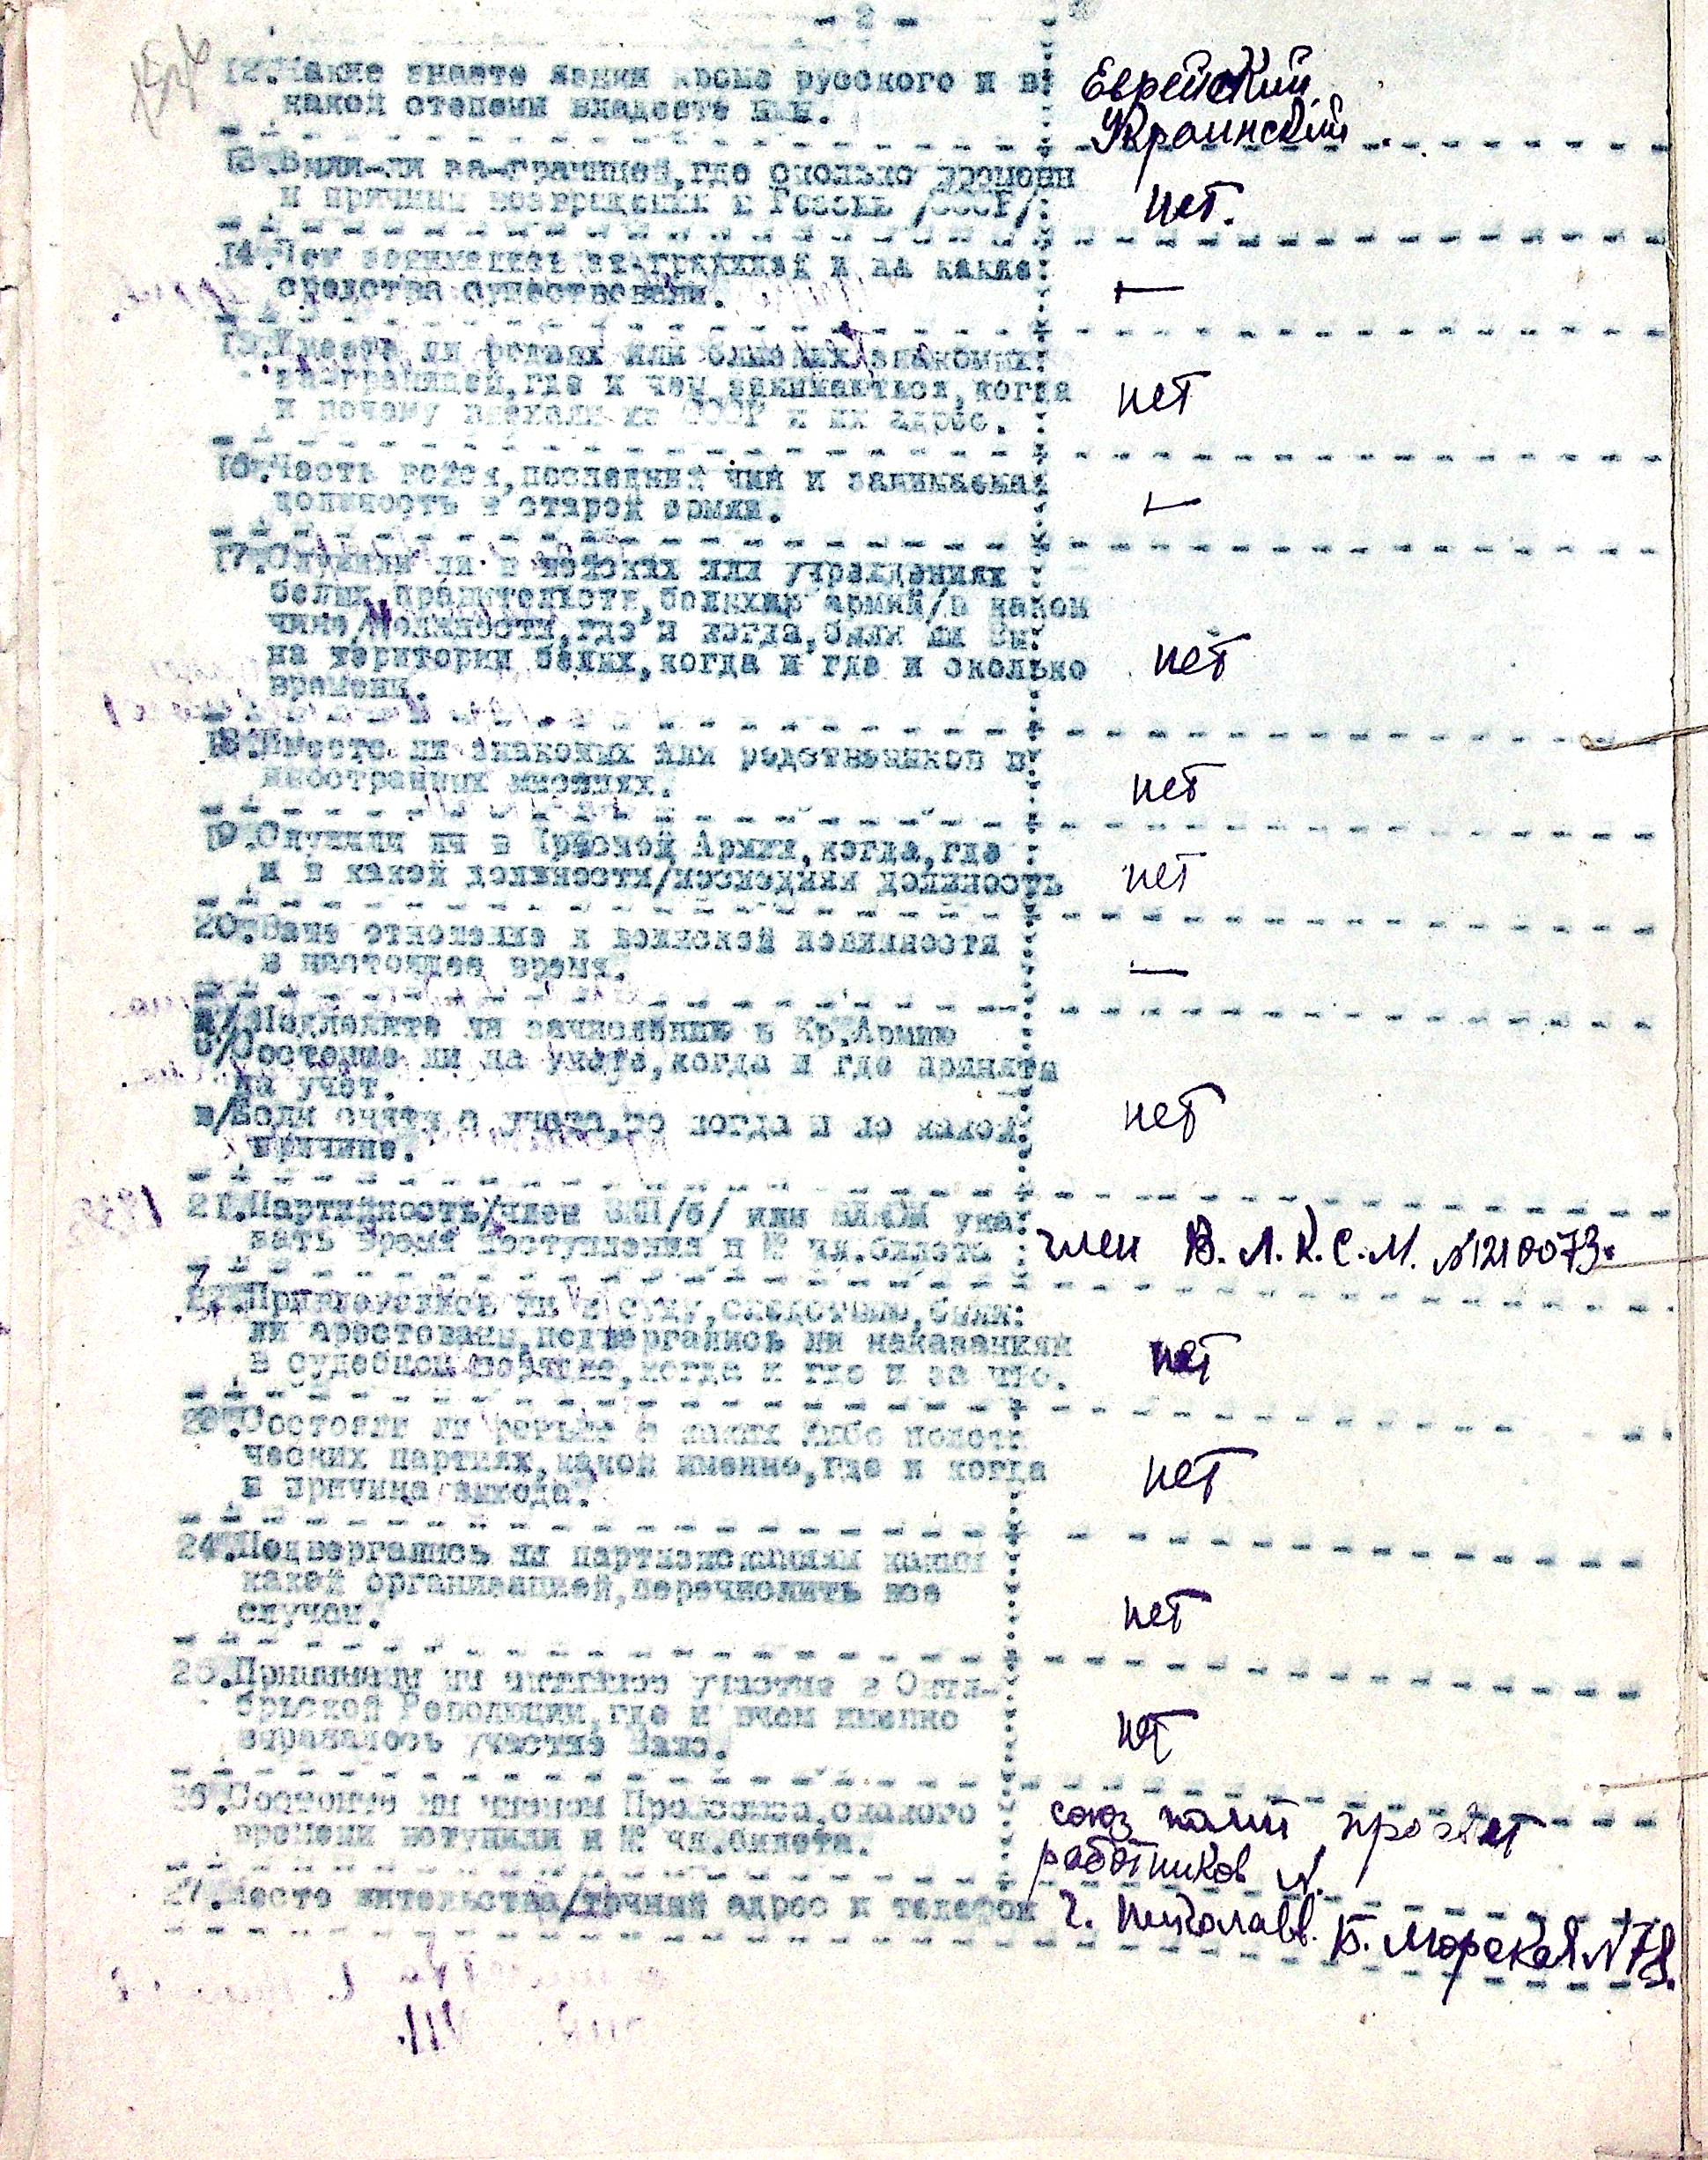 - 2 -
12. Какие знаете языки кроме русского и в
какой степени владеете ими.
Еврейский
Украинский
13. Были-ли за-границей, где сколько времени
и причины возвращения в Россию /СССР/
нет.
14. Чем занимались за-границей и на какие
средства существовали.
—
15. Имеете ли родных или близких знакомых
за-границей, где и чем занимаються, когда
и почему выехали из СССР и их адрес.
нет
16. Часть войск, последний чин и занимаемая
должность в старой армии.
—
17. Служили ли в войсках или учреждениях
белых правительств, белых армий/в каком
чине/должности, где и когда, были ли Вы
на територии белых, когда и где и сколько
времени.
нет
18. Имеете ли знакомых или родственников в
иностранных миссиях.
нет
19. Служили ли в Красной Армии, когда, где
и в какой должности/последняя должность
нет
20. Ваше отношение к воинской повинности
в настоящее время.
—
а/Подлежите ли зачислению в Кр.Армию
б/Состоите ли на учете, когда и где приняты
на учет.
в/Если сняты с учета, то когда и по какой
причине.
нет
21. Партийность/член ВКП/б/ или ВЛКСМ ука
зать время поступления и № чл.билета
член В.Л.К.С.М. №1210073.
22. Привлекались ли к суду, следствию, были
ли арестованы, подвергались ли наказаниям
в судебном порядке, когда и где и за что.
нет
23. Состояли ли раньше в каких либо полити
ческих партиях, какой именно, где и когда
и причина выхода.
нет
24. Подвергались ли партвзысканиям какой
какой организацией, перечислить все
случаи.
нет
25. Принимали ли активное участие в Октя-
брьской Революции, где и вчем именно
выражалось участие Ваше.
нет
26. Состоите ли членом Профсоюза, с какого
времени вступили и № чл.билета.
союз просвет
работников №.
27. Место жительства/точный адрес и телефон
г. Николаев. Б. Морская №78.